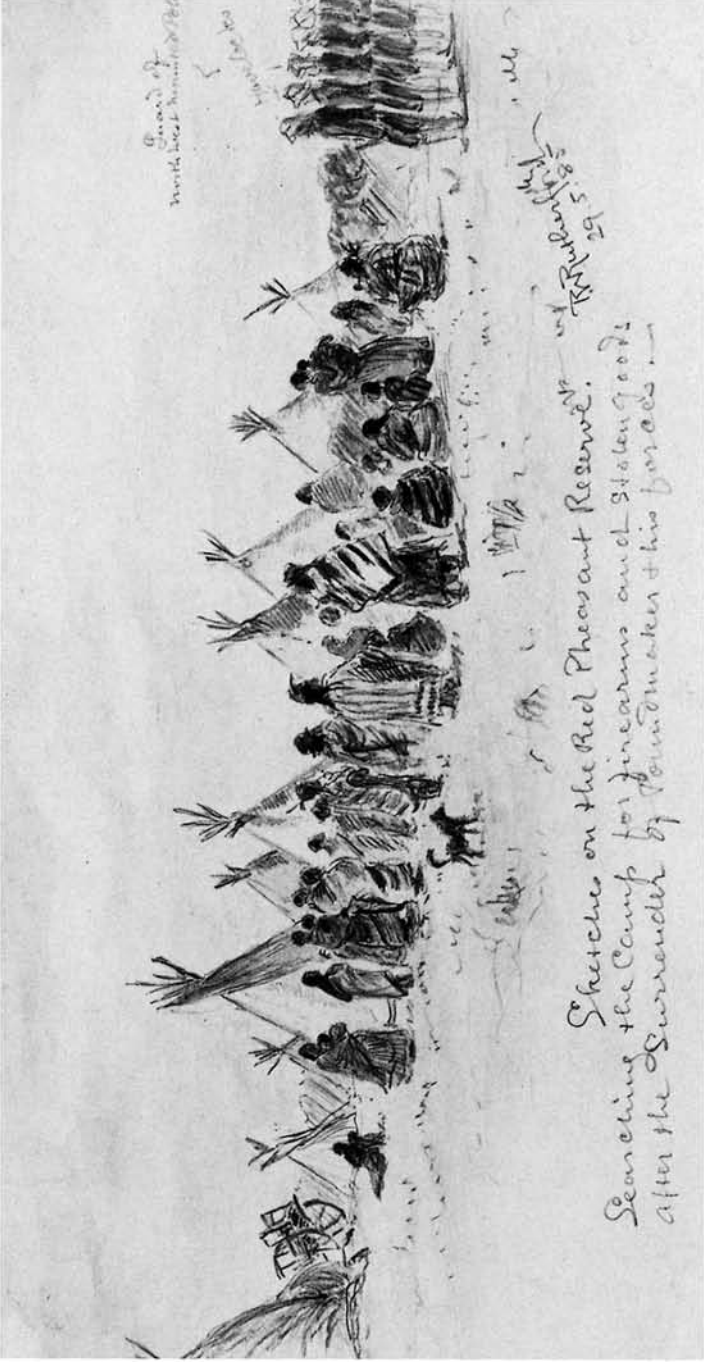 Guard of
Northwest Mounted
Sketches on the Red Pheasant Reserve.
Searching the Camp for firearms and Stolen goods
after the Surrender by Poundmaker & his forces.—
Rutherford
29.5.85